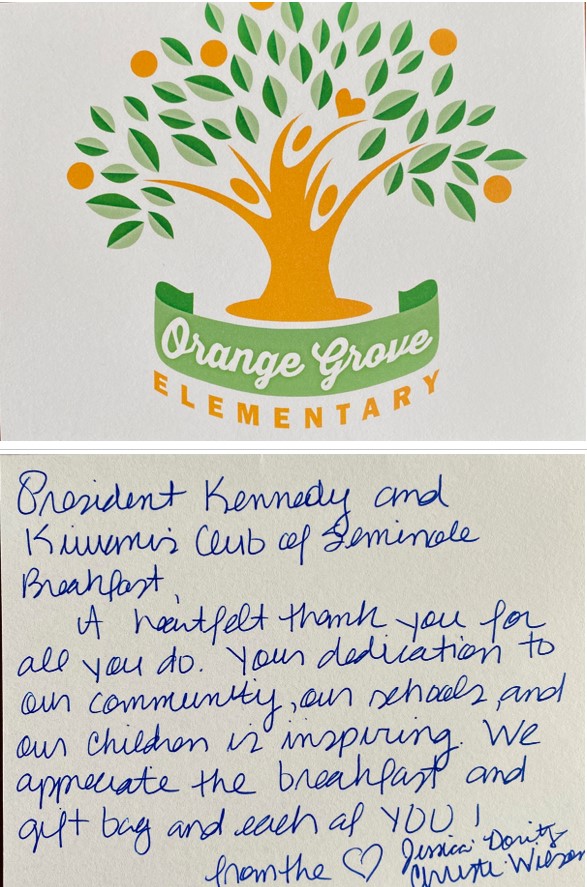 Orange Grove
ELEMENTARY
President Kennedy and
Kiwanis Club of Seminole
Breakfast,
A heartfelt thank you for
all you do. Your dedication to
our community, our schools, and
our children is inspiring. We
appreciate the breakfast and
gift bag and each of YOU!
from the ♡ Jessica
Christi Wilson